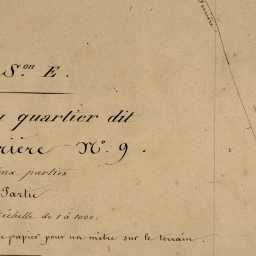 S.on E.
quartier dit
rière N.o 9.
parties
Partie
Échelle de 1 à 1000.
papier pour un mètre sur le terrain.